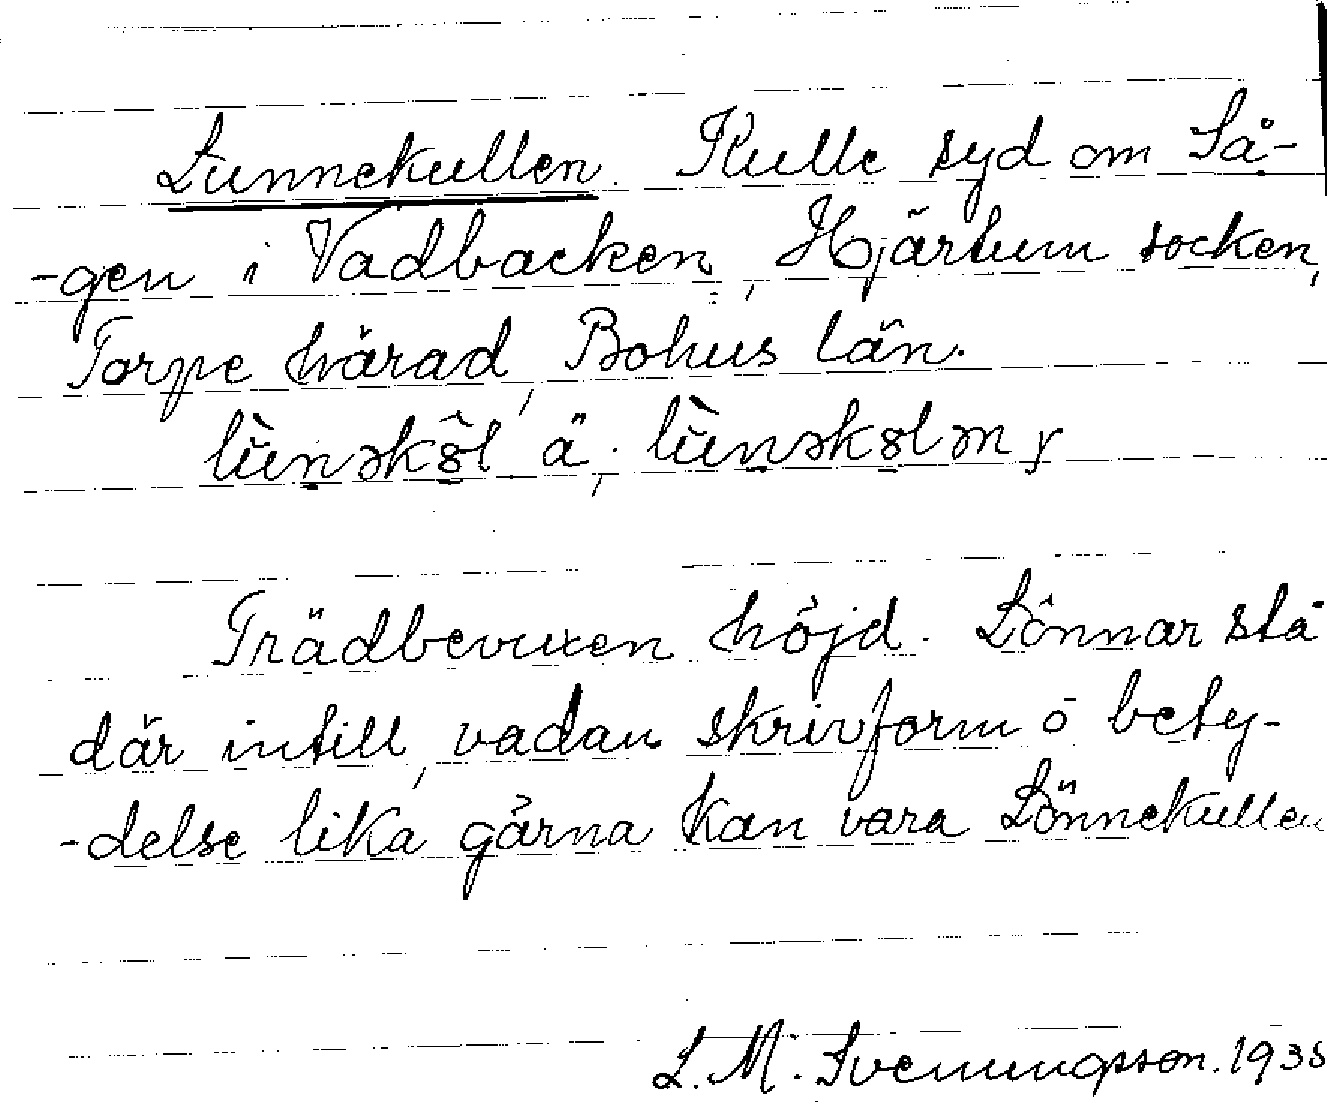 Lunnekullen. Kulle syd om Så-
-gen i Vadbacken, Hjärtum socken,
Torpe härad, Bohus län.
lùnəkôl ä; lùnəkolən,
Trädbevuxen höjd. Lönnar stå
där intill, vadan skrivform o bety-
-delse lika gärna kan vara Lönnekullen
L. M. Svenungsson. 1935